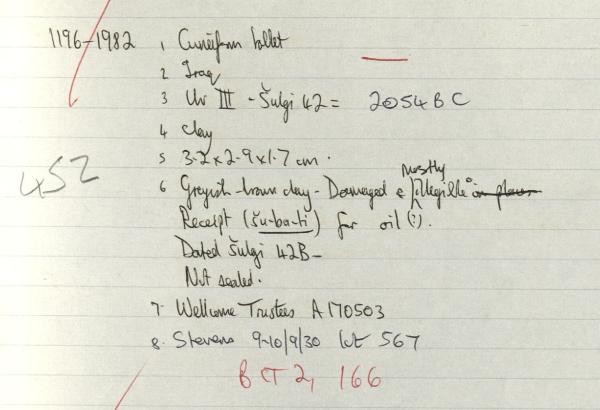 1196-1982 1 Cuneiform tablet
2 Iraq
3 Ur III - Šulgi 42 = 2054 BC
4 Clay
5 3.2 x 2.9 x 1.7 cm.
6 Greyish-brown clay - Damaged & mostly illegible in places
452
Receipt (šu-ba-ti) for oil (?).
Dated Šulgi 42B-
Not sealed.
7. Wellcome Trustees A 170503
8. Stevens 9-10/9/30 lot 567
BCT 2, 166